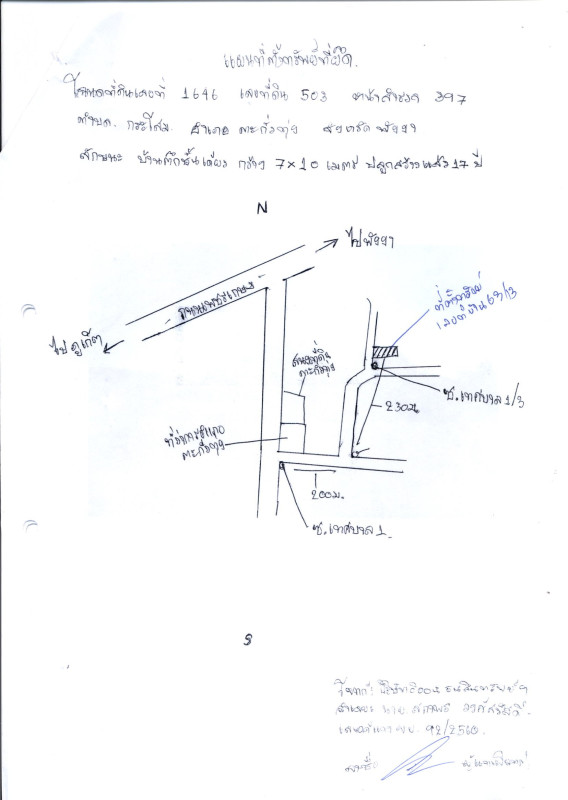 แผนที่ตั้งทรัพย์ที่ยึด.
โฉนดที่ดินเลขที่ 1646 เลขที่ดิน 503 หน้าสำรวจ 397
ตำบล. กระโสม อำเภอ ตะกั่วทุ่ง จังหวัด พังงา
ลักษณะ บ้านตึกชั้นเดียว กว้าง 7×10 เมตร ปลูกสร้างแล้ว 17 ปี
N
ไปพังงา
ถนนเพชรเกษม
ไปภูเก็ต
ที่ตั้งทรัพย์
เลขที่บ้าน 69/3
สนง.ที่ดิน
ตะกั่วทุ่ง
ซ.เทศบาล 1/3
230ม.
ที่ว่าการอำเภอ
ตะกั่วทุ่ง
200ม.
ซ.เทศบาล 1.
โจทก์
จำเลย นาย
92/2560.
ลงชื่อ